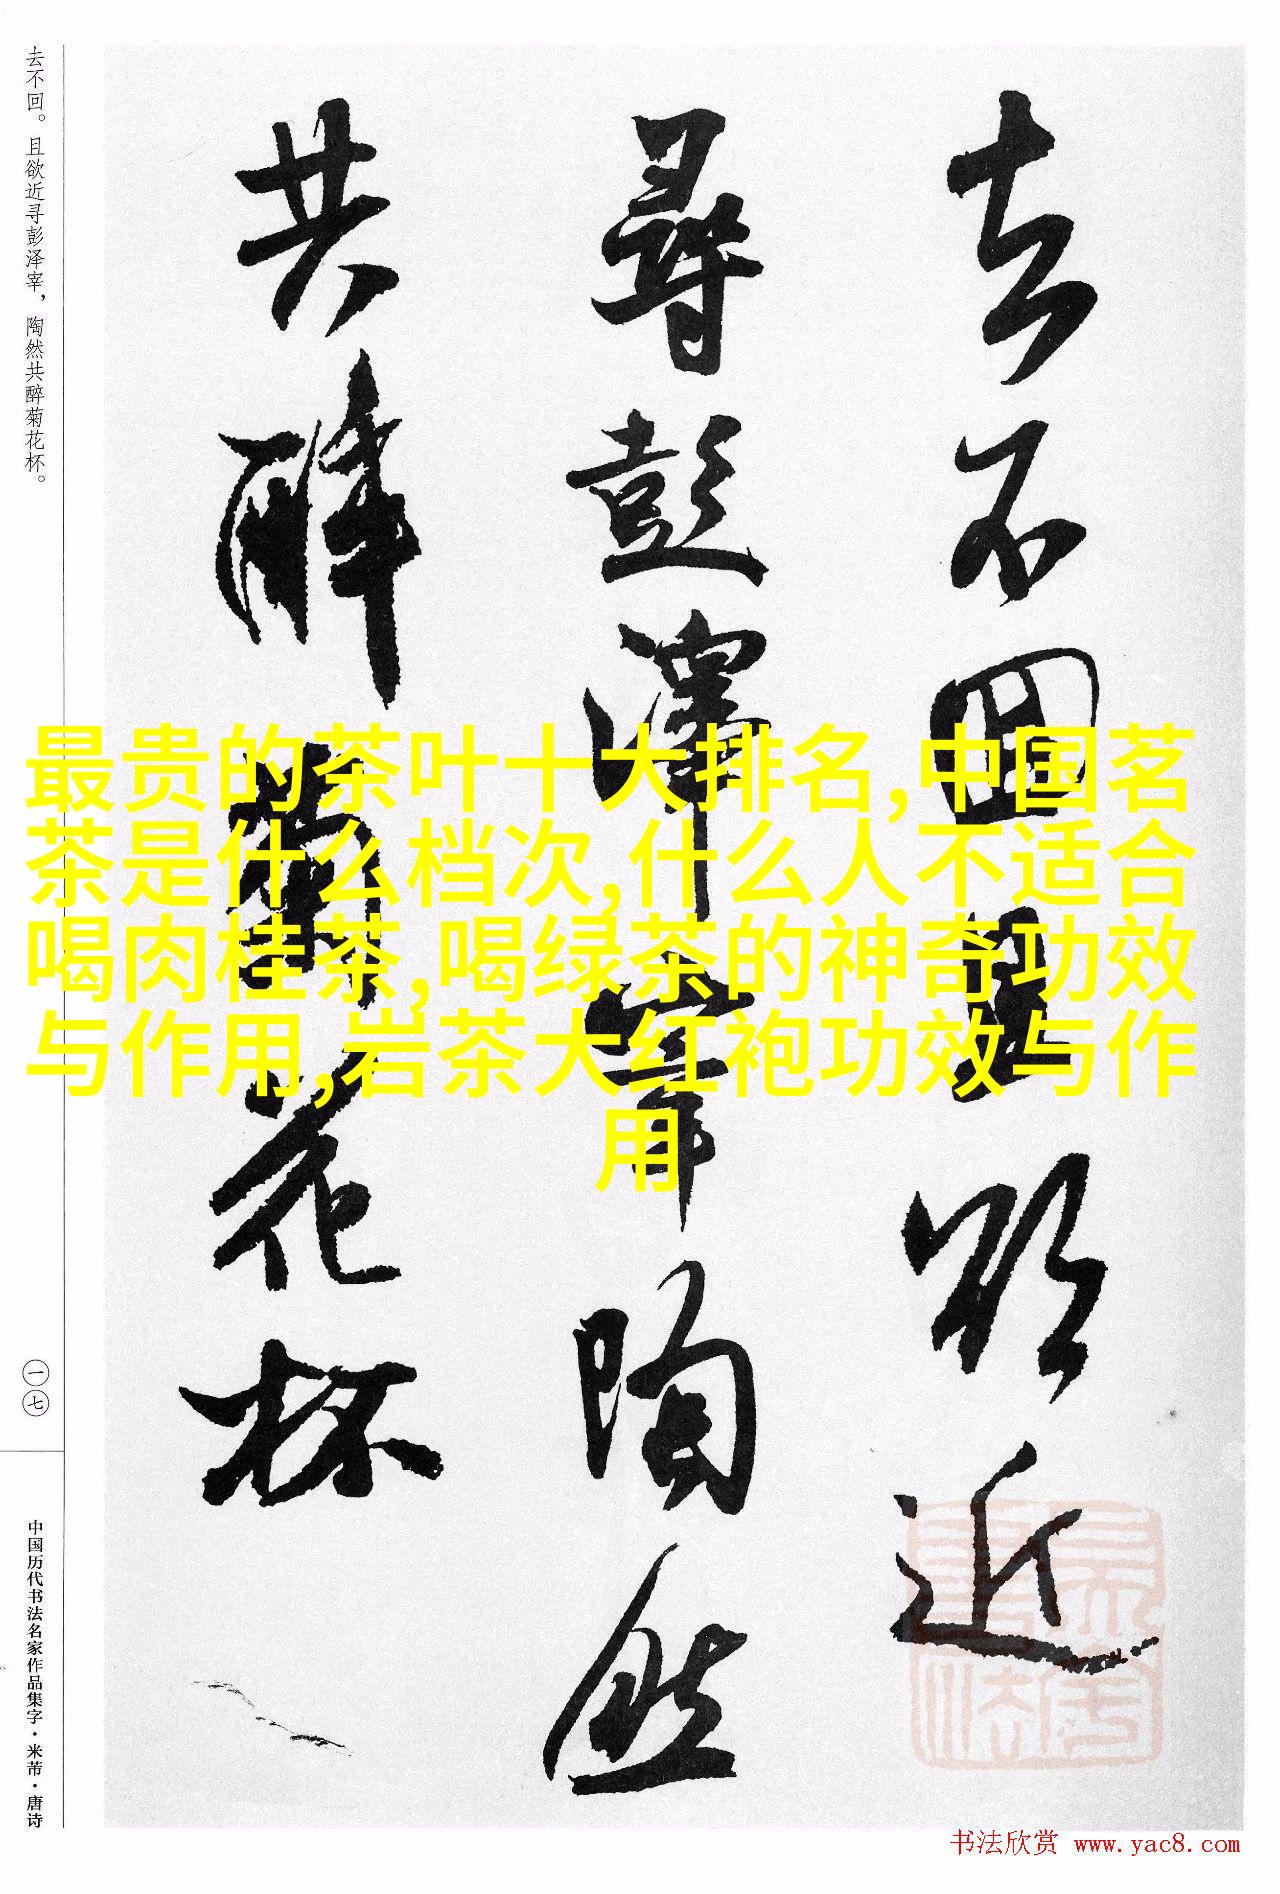 去不回且欲近
尋彭澤宰陶然
共醉菊花杯
去不回。且欲近寻彭泽宰，陶然共醉菊花杯。
一七
中国历代书法名家作品集字·米芾·唐诗
最贵的茶叶十大排名,中国茗
茶是什么档次,什么人不适合
喝肉桂茶,喝绿茶的神奇功效
与作用,岩茶大红袍功效与作
用
书法欣赏 www.yac8.com